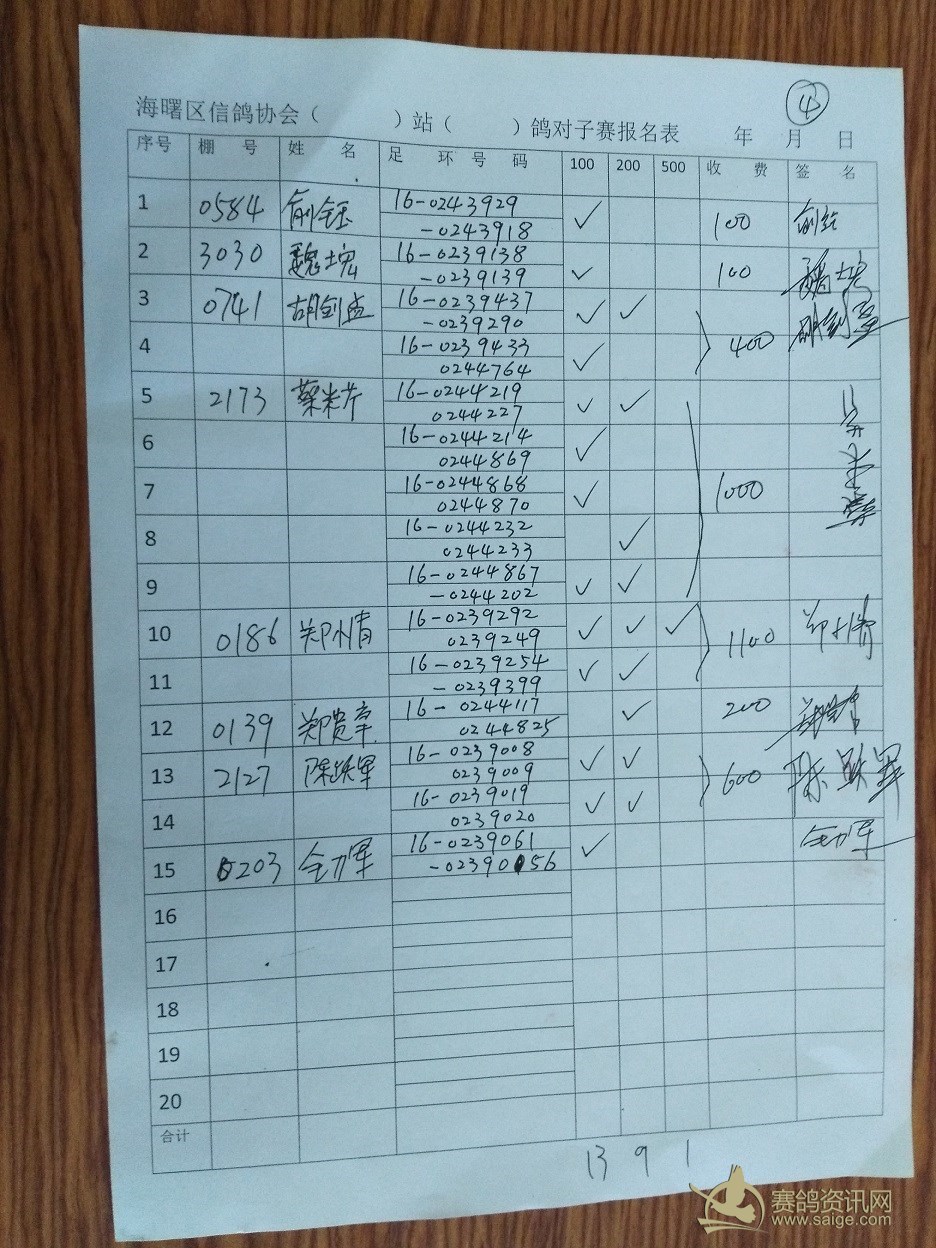 ④
海曙区信鸽协会（ ）站（ ）鸽对子赛报名表 年 月 日
序号 棚号 姓名 足环号码 100 200 500 收费 签名
1 0584 俞钰 16-0243929 ✓ 100 俞钰
-0243918
2 3030 魏士宏 16-0239138 ✓ 100
-0239139
3 0741 胡剑孟 16-0239437 ✓ ✓ 400
-0239290
4 16-0239433 ✓
0244764
5 2173 蔡米芹 16-0244219 ✓ ✓ 1000
0244227
6 16-0244214 ✓
0244869
7 16-0244868 ✓
0244870
8 16-0244232 ✓
0244233
9 16-0244867 ✓ ✓
-0244202
10 0186 郑小青 16-0239292 ✓ ✓ ✓ 1100
0239249
11 16-0239254 ✓ ✓
-0239399
12 0139 郑贵章 16-0244117 ✓ 200
0244825
13 2127 陈跃军 16-0239008 ✓ ✓ 600 陈跃军
0239009
14 16-0239019 ✓ ✓
0239020
15 0203 全力军 16-0239061 ✓ 全力军
-0239056
16
17
18
19
20
合计
13 9 1
赛鸽资讯网
www.saige.com